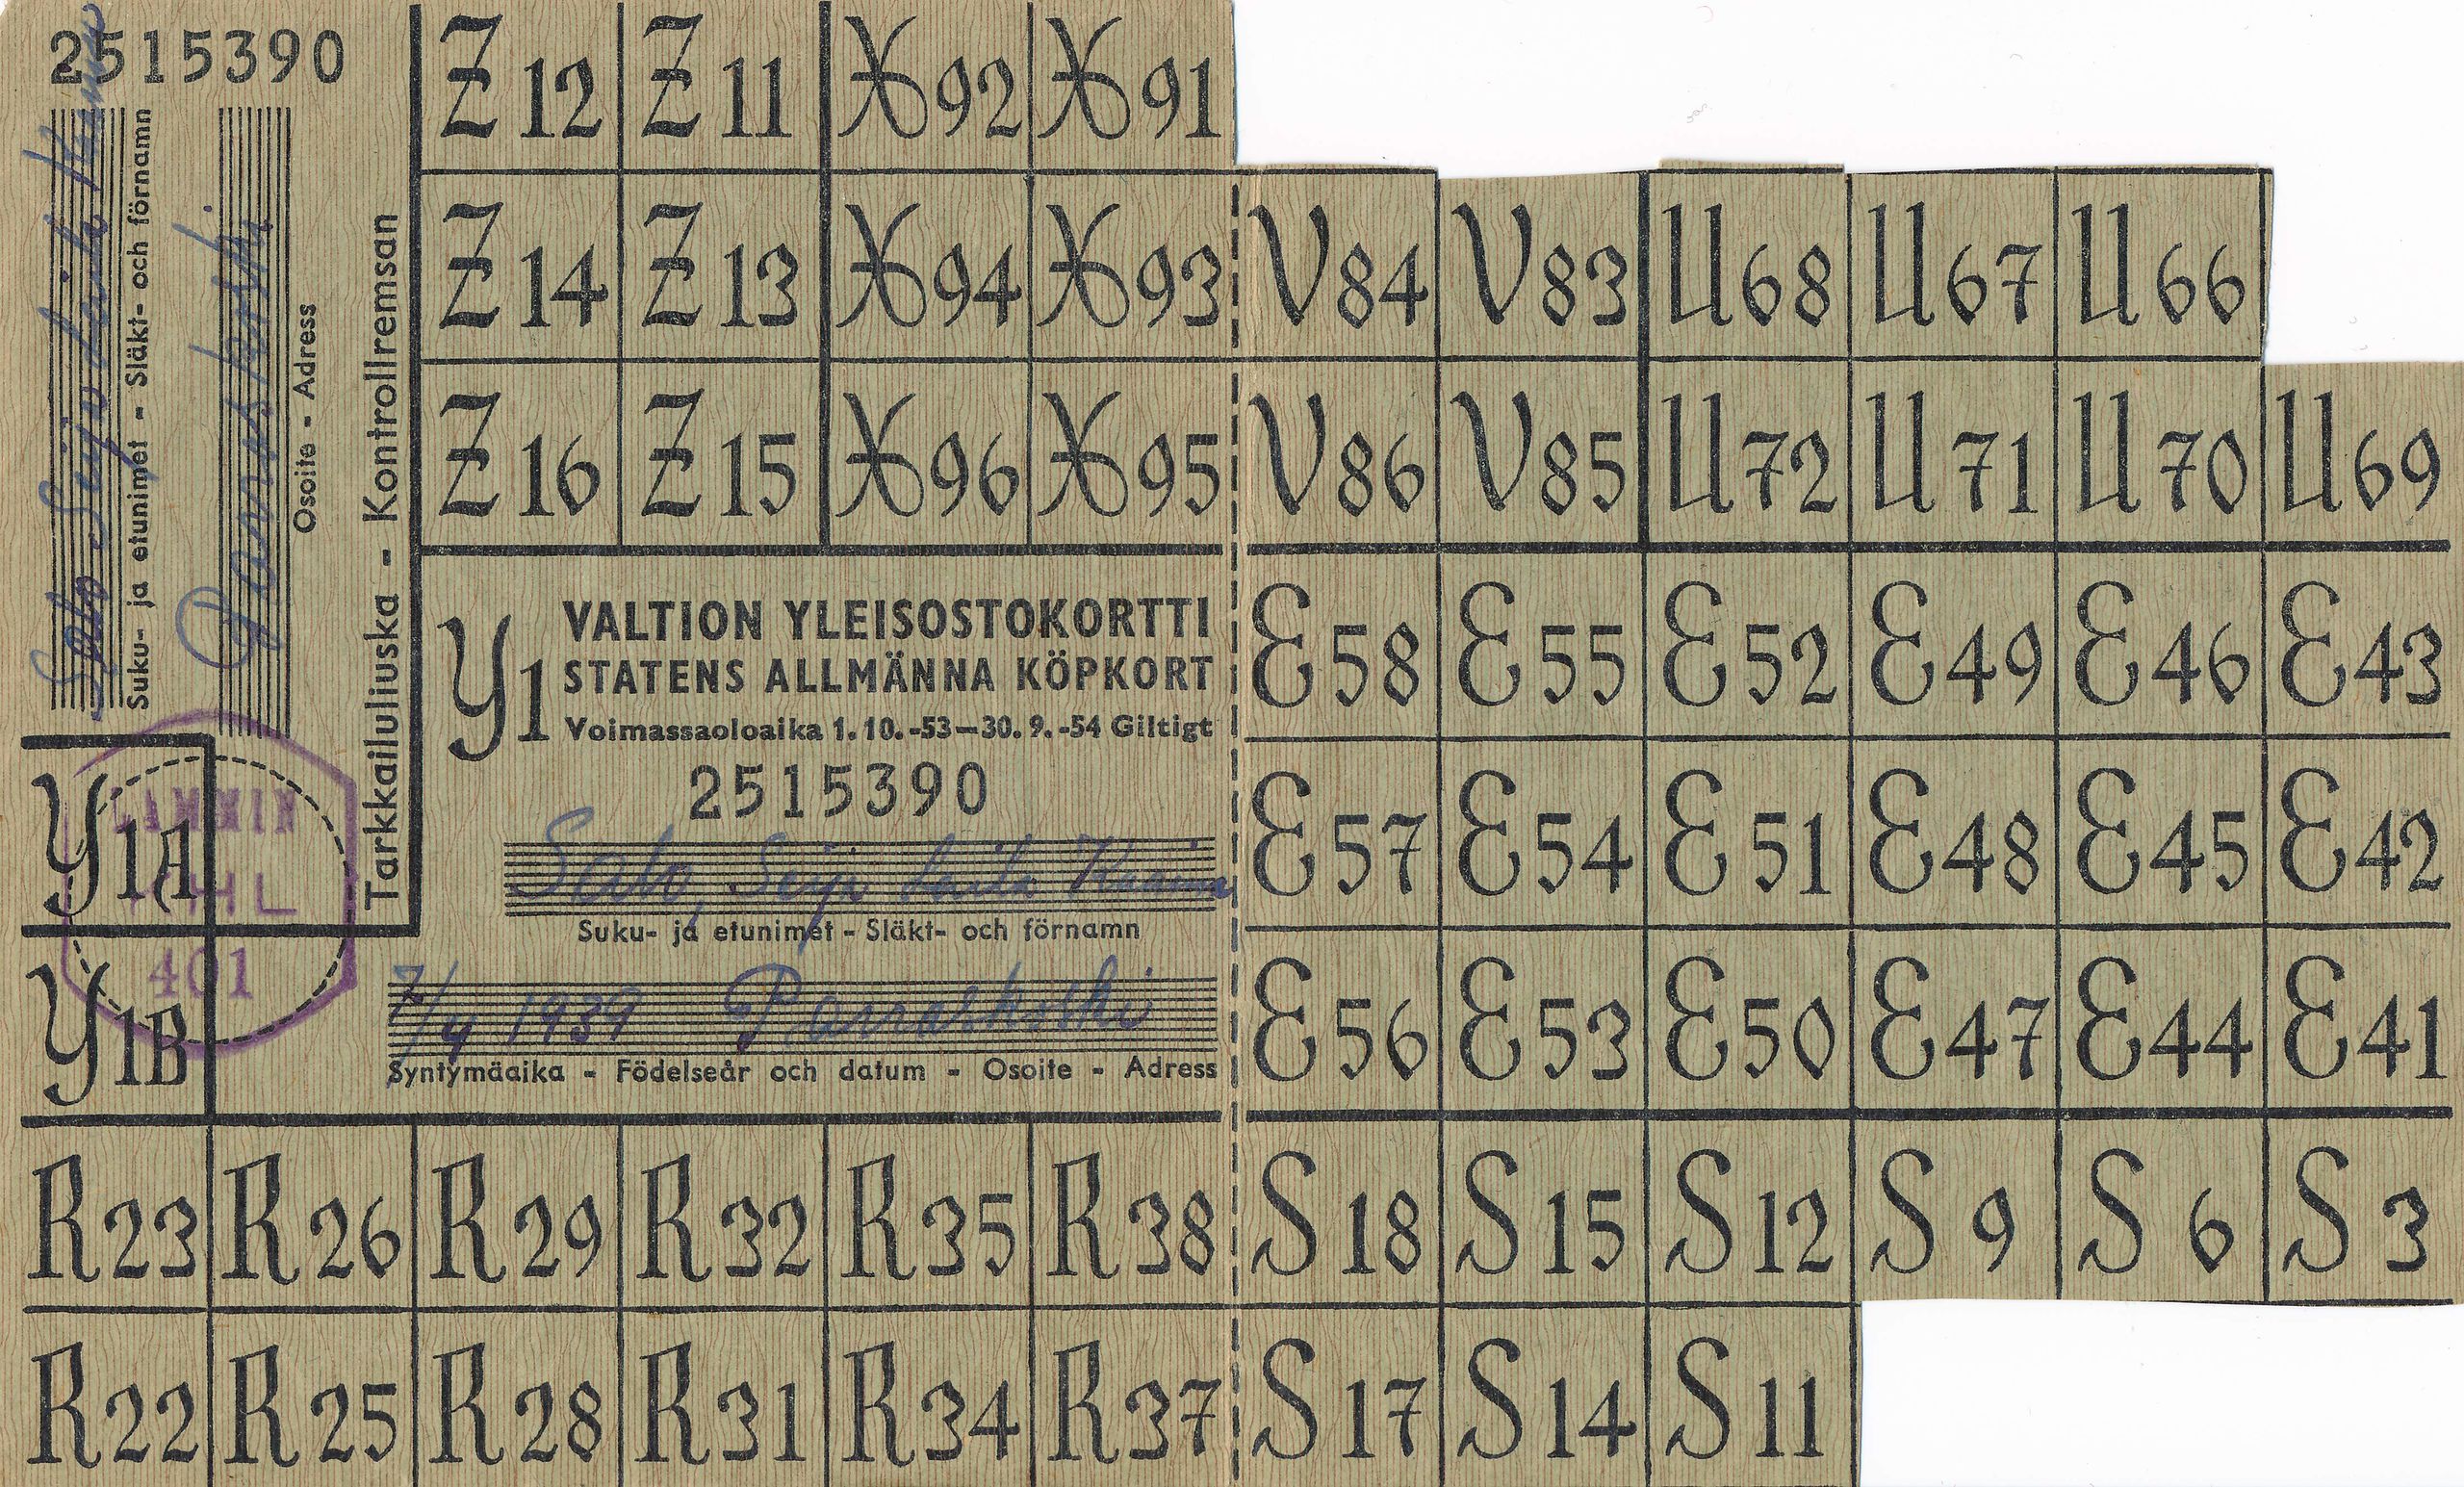 2515390
Suku- ja etunimet - Släkt- och förnamn
Osoite - Adress
Tarkkailuliuska - Kontrollremsan
Z 12 Z 11 X 92 X 91
Z 14 Z 13 X 94 X 93 V 84 V 83 U 68 U 67 U 66
Z 16 Z 15 X 96 X 95 V 86 V 85 U 72 U 71 U 70 U 69
Y1
VALTION YLEISOSTOKORTTI
STATENS ALLMÄNNA KÖPKORT
Voimassaoloaika 1.10.-53—30.9.-54 Giltigt
2515390
Salo, Seija Laila
Suku- ja etunimet - Släkt- och förnamn
7/4 1939
Syntymäaika - Födelseår och datum - Osoite - Adress
Y1A
Y1B
KHL
401
E 58 E 55 E 52 E 49 E 46 E 43
E 57 E 54 E 51 E 48 E 45 E 42
E 56 E 53 E 50 E 47 E 44 E 41
R 23 R 26 R 29 R 32 R 35 R 38 S 18 S 15 S 12 S 9 S 6 S 3
R 22 R 25 R 28 R 31 R 34 R 37 S 17 S 14 S 11